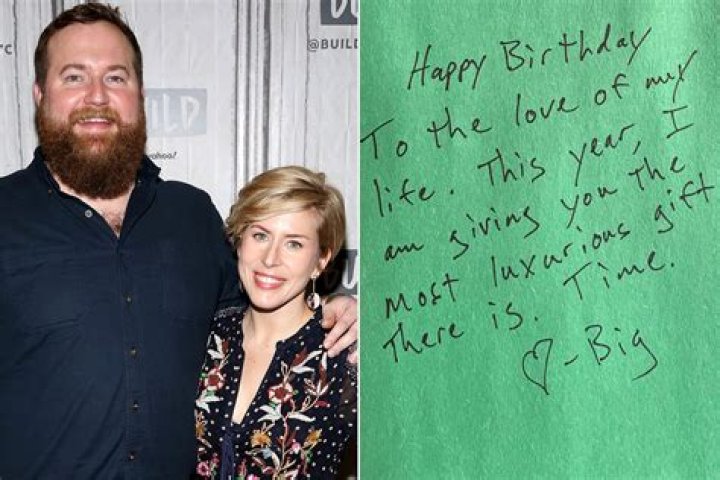 @BUIL
BUILD
yahoo!
Happy Birthday
To the love of my
life. This year, I
am giving you the
most luxurious gift
there is. Time.
♡-Big